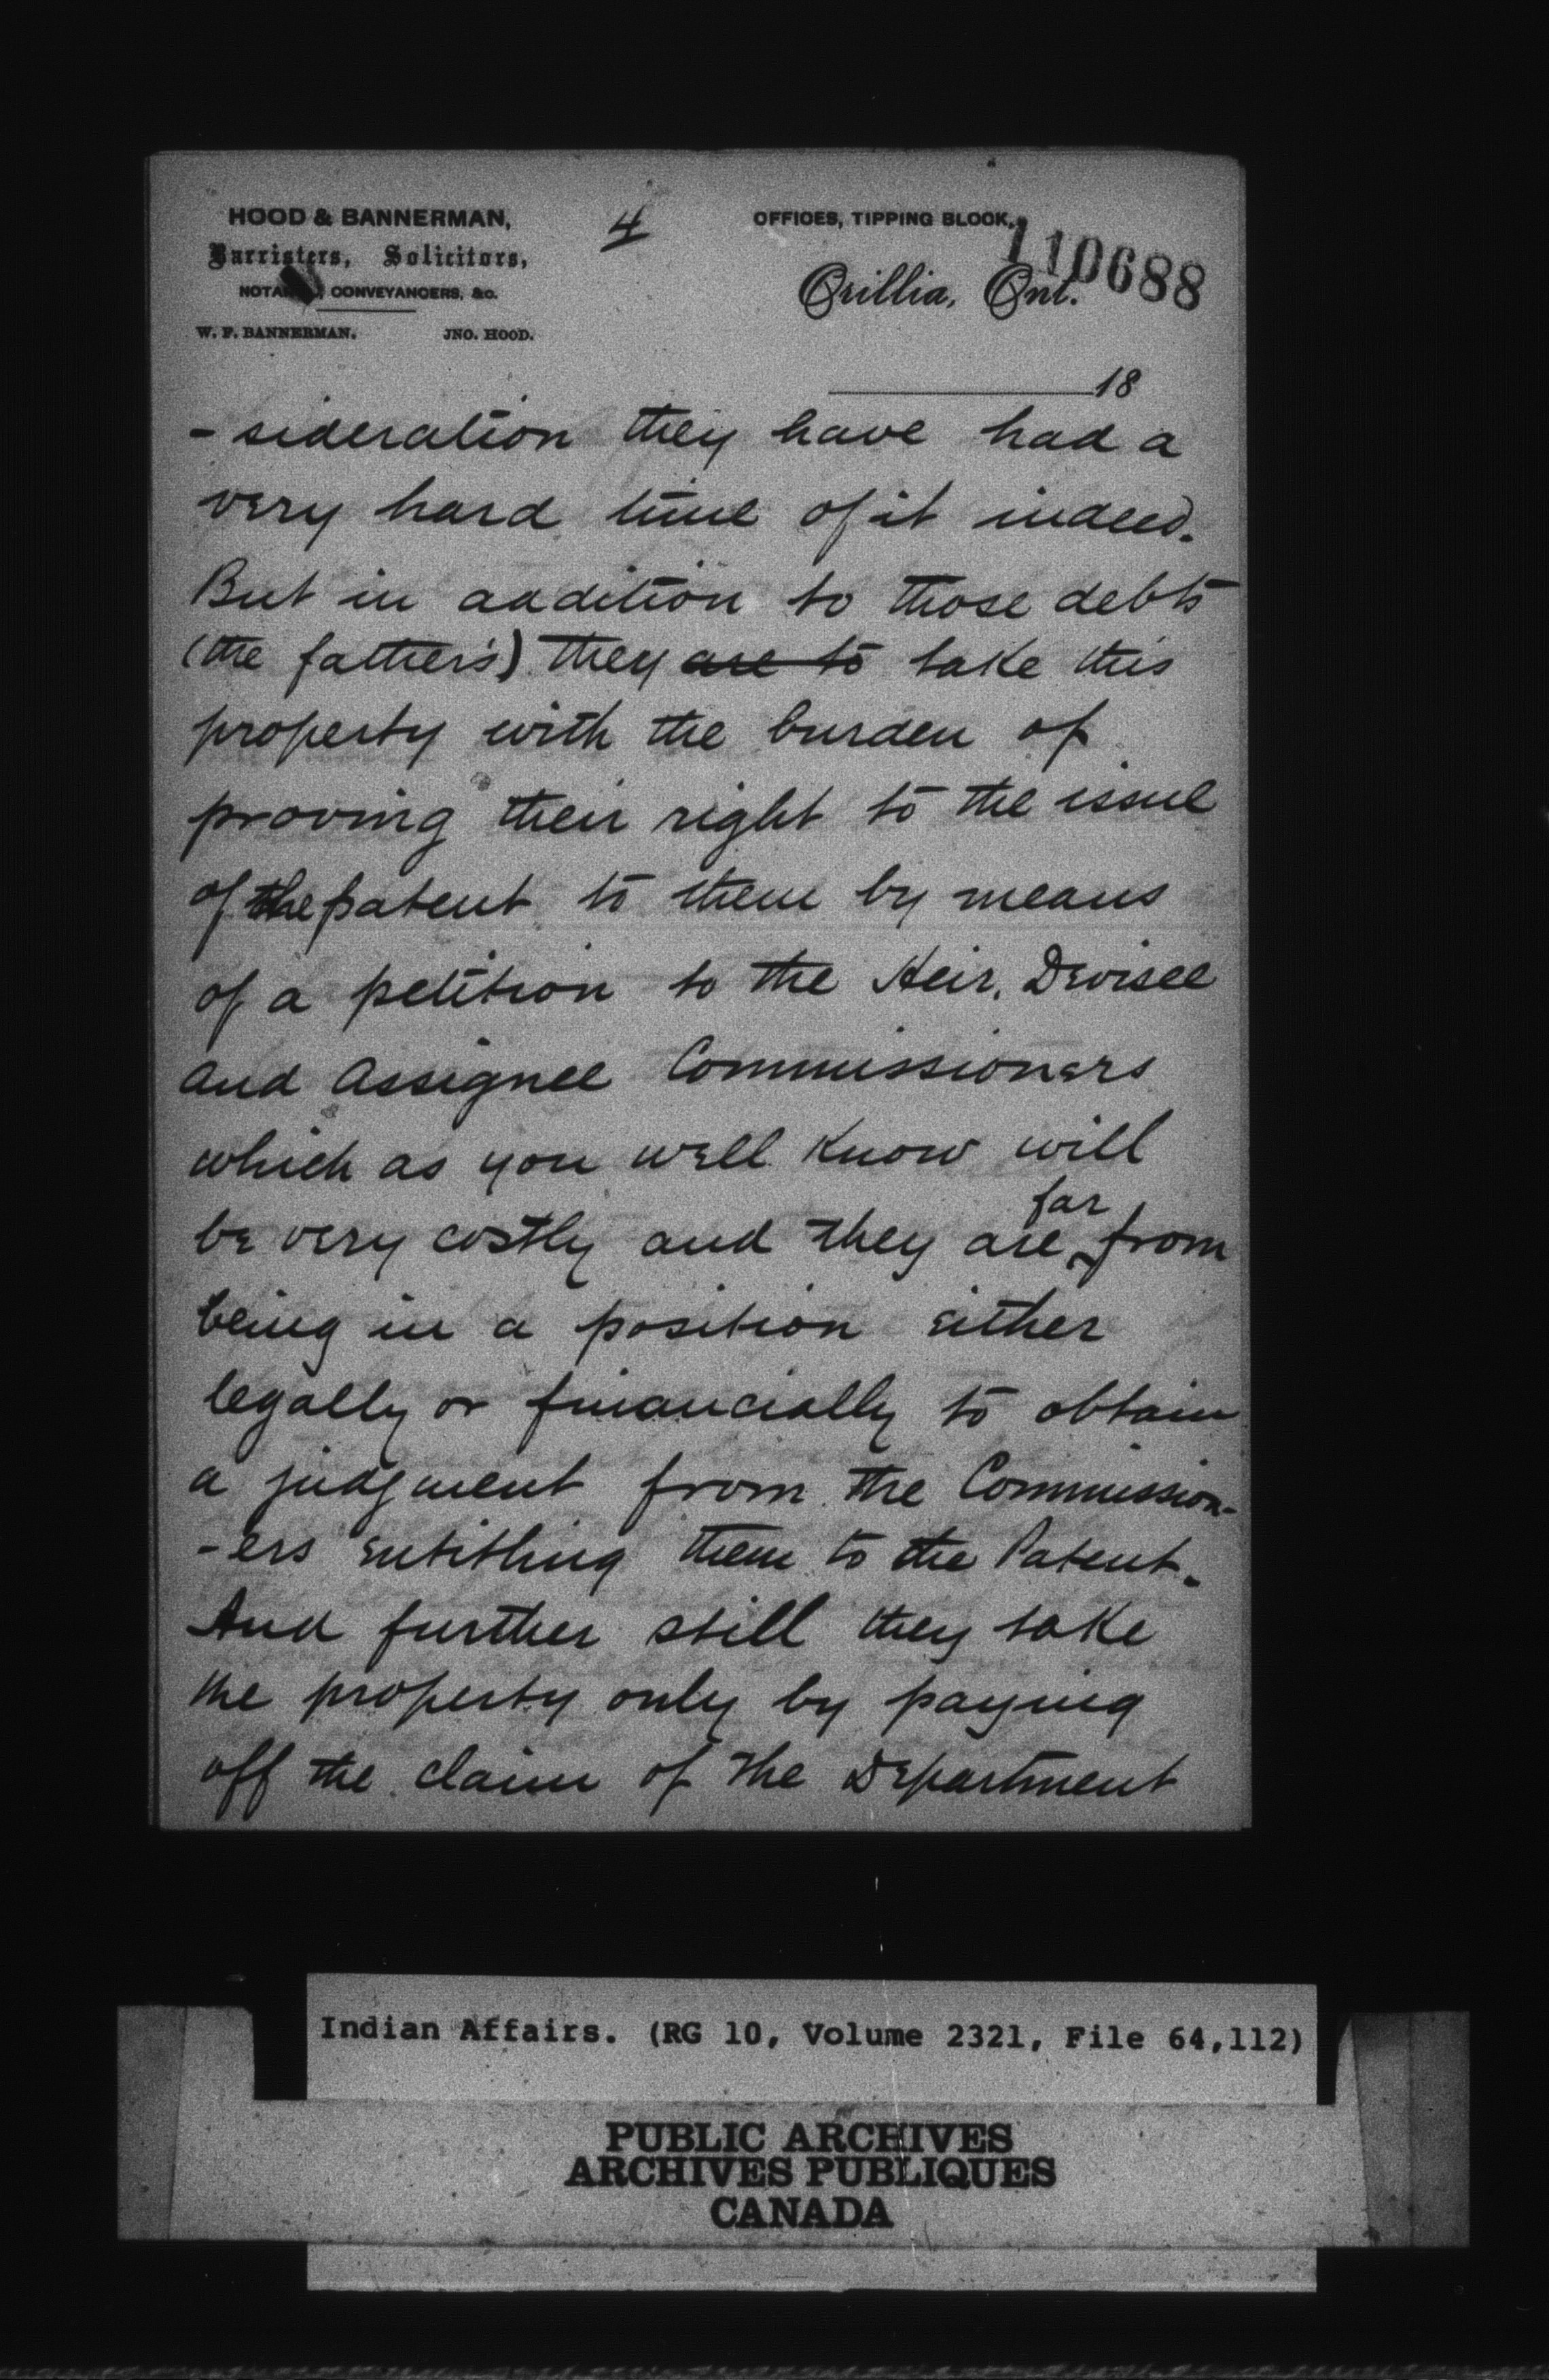 HOOD & BANNERMAN,
Barristers, Solicitors,
CONVEYANCERS, &c.
W. F. BANNERMAN. JNO. HOOD.
4
OFFICES, TIPPING BLOCK,
110688
Orillia, Ont.
18
-sideration they have had a
very hard time of it indeed.
But in addition to those debts
(the father's) they are to take this
property with the burden of
proving their right to the issue
of the patent to them by means
of a petition to the Heir, Devisee
and Assignee Commissioners
which as you well know will
be very costly and they are far from
being in a position either
legally or financially to obtain
a judgment from the Commission-
-ers entitling them to the Patent.
And further still they take
the property only by paying
off the claim of the Department
Indian Affairs. (RG 10, Volume 2321, File 64,112)
PUBLIC ARCHIVES
ARCHIVES PUBLIQUES
CANADA